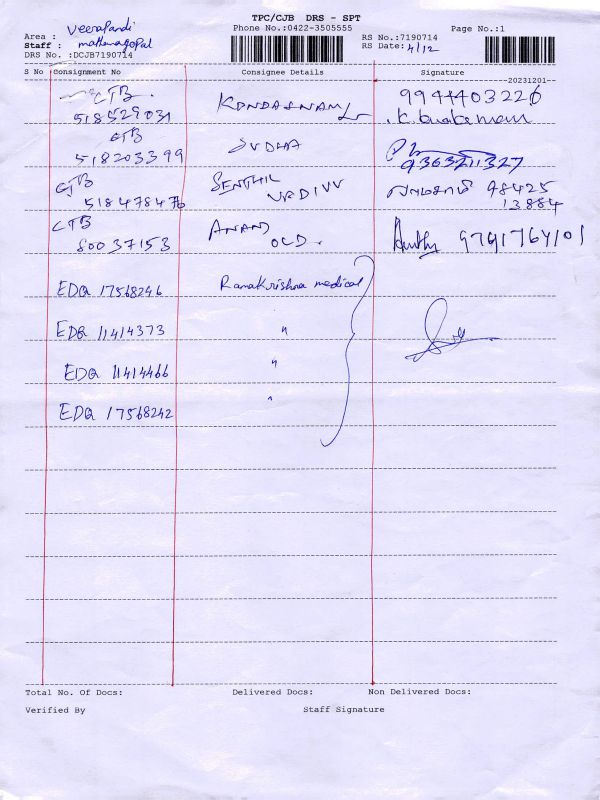 TPC/CJB DRS - SPT
Area : Veerapandi
Phone No.:0422-3505555
RS No.:7190714
Page No.:1
Staff : mathanagopal
RS Date: 4/12
DRS No. :DCJB7190714
S No Consignment No Consignee Details Signature
20231201
CTB 9944403226
518529031 K.
CTB SUDHA
518203399 9363211327
CTB SENTHIL 98425
518478476 VADIVU 13884
CTB ANAND 9791764101
80037153 OLD.
EDQ 17568246 Ramakrishna medical
EDQ 11414373 "
EDQ 11414466 "
EDQ 17568242 "
Total No. Of Docs: Delivered Docs: Non Delivered Docs:
Verified By Staff Signature